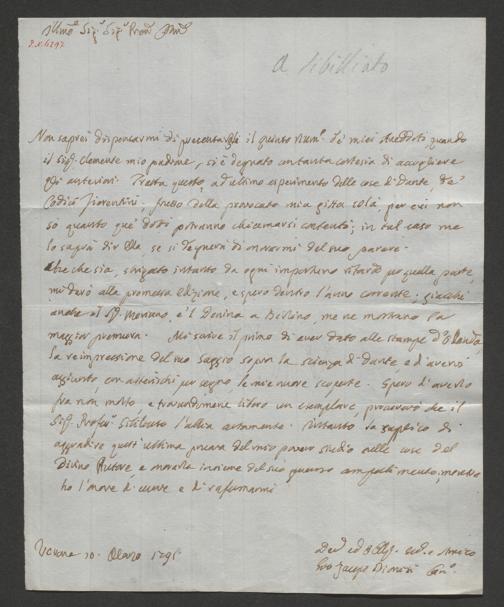 Illmo Sigr Sigr Pron Colmo
A Sibiliato
Non saprei dispensarmi di presentargli il quinto Num. de' miei Aneddoti, quando
il Sigr. Clemente mio padrone, si è degnato con tanta cortesia di accogliere
gli anteriori. Tratta questo, ad ultimo esperimento delle cose di Dante, da'
Codici Fiorentini. frutto della provocata mia gitta colà, per cui non
so quanto que' dotti potranno chiamarsi contenti; in tal caso me
lo saprà dir Ella se si degnerà di onorarmi del suo parere.
Che che sia, sbrigato intanto da ogni importuno ritardo per quella parte,
mi darò alla promessa edizione, e spero dentro l'anno corrente; giacché
anche il Sigr. Meriano, e 'l Denina a Berlino, me ne mostrano la
maggior premura. Mi scrive il primo di aver dato alle stampe d'Olanda,
la reimpressione del suo Saggio sopra la scienza di Dante, e d'avervi
aggiunto, con asterischi per segno le mie nuove scoperte. Spero d'averlo
fra non molto, e trovandomene libero un esemplare, procurerò che il
Sigr. Profess. Sibiliato l'abbia certamente. Intanto la supplico di
aggradire quest'ultima prova del mio povero studio nelle cose del
Divino Autore, e onorarla insieme del suo
ho l'onore di essere e di rafermarmi
Verona 10. Marzo
Devo ed Obblig. e Amico
Gio. Jacopo Dionisi Cano.